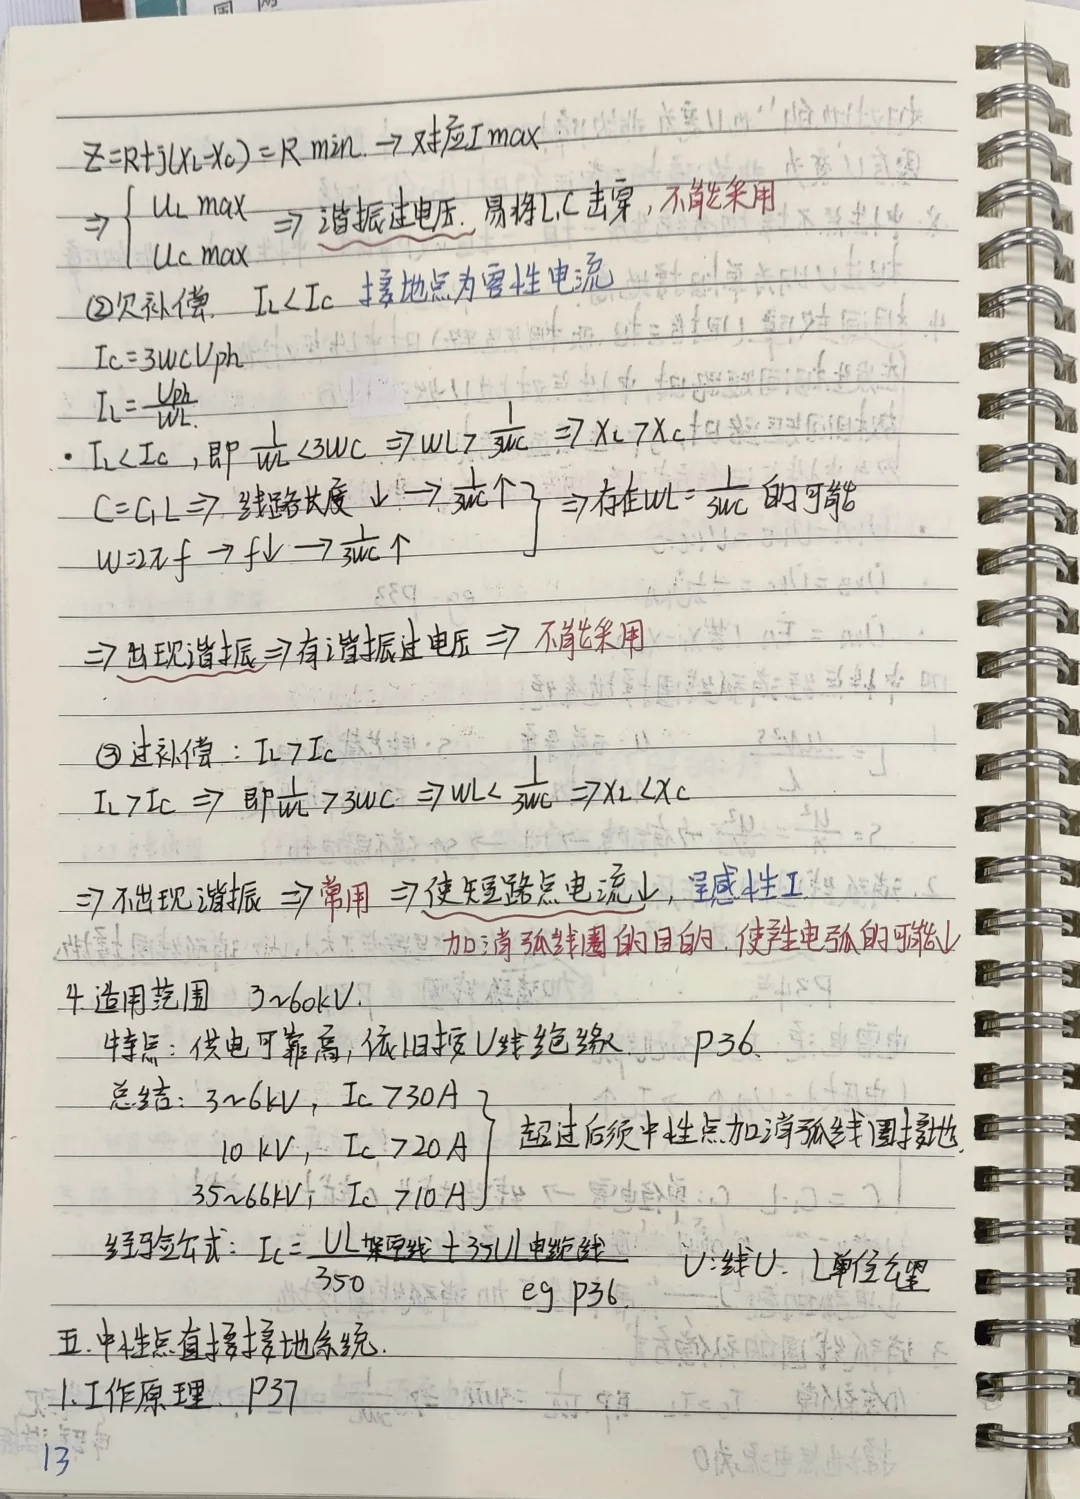 Z=R+j(XL-XC)=R min. → 对应Imax
⇒ { UL max
Uc max
⇒ 谐振过电压. 易将L,C击穿, 不能采用
②欠补偿. IL<Ic 接地点为容性电流
Ic=3WCUph
IL=Uph/WL
· IL<Ic, 即 1/WL<3WC ⇒ WL>1/3WC ⇒ XL>Xc
C=C₁L ⇒ 线路长度↓ → 1/3WC↑
W=2πf → f↓ → 1/3WC↑
} ⇒存在WL=1/3WC的可能
⇒出现谐振⇒有谐振过电压 ⇒ 不能采用
③过补偿: IL>Ic
IL>Ic ⇒ 即1/WL>3WC ⇒WL<1/3WC ⇒XL<Xc
⇒不出现谐振 ⇒常用 ⇒使短路点电流↓, 呈感性I.
加消弧线圈的目的. 使产生电弧的可能↓
4.适用范围 3~60kV.
特点: 供电可靠高, 依旧按U线绝缘. P36.
总结: 3~6kV, Ic>30A
10kV, Ic>20A
35~66kV, Ic>10A
} 超过后须中性点加消弧线圈接地.
经验公式: Ic=(UL架空线+35Ul电缆线)/350 U:线U. L单位公里
eg p36.
五.中性点直接接地系统.
1.工作原理. P37
13